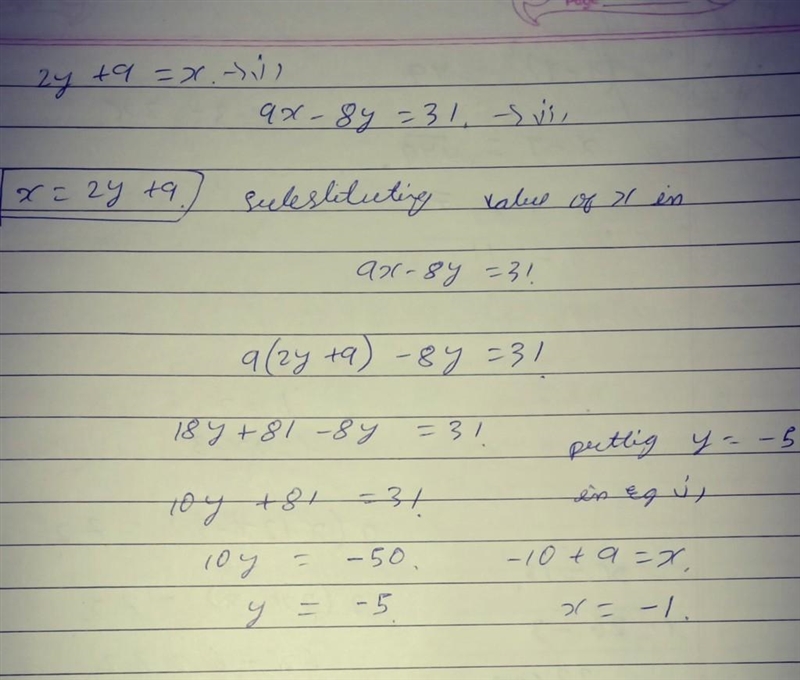 2y + 9 = x → i,
9x - 8y = 31. → ii,
x = 2y + 9. substituting value of x in
9x - 8y = 31
9(2y + 9) - 8y = 31.
18y + 81 - 8y = 31. puttig y = -5
10y + 81 = 31. in eq i,
10y = -50. -10 + 9 = x.
y = -5. x = -1.